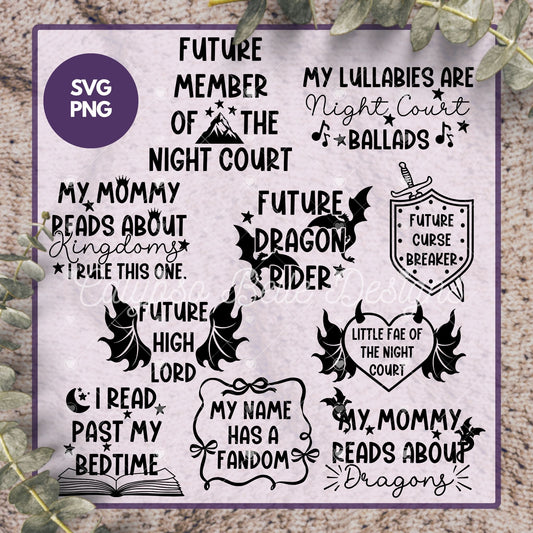 SVG
PNG
FUTURE
MEMBER
OF THE
NIGHT COURT
MY LULLABIES ARE
Night Court
BALLADS
MY MOMMY
READS ABOUT
Kingdoms
I RULE THIS ONE.
FUTURE
DRAGON
RIDER
FUTURE
CURSE
BREAKER
Calypso Belle Designs
FUTURE
HIGH
LORD
LITTLE FAE OF
THE NIGHT
COURT
I READ
PAST MY
BEDTIME
MY NAME
HAS A
FANDOM
MY MOMMY
READS ABOUT
Dragons